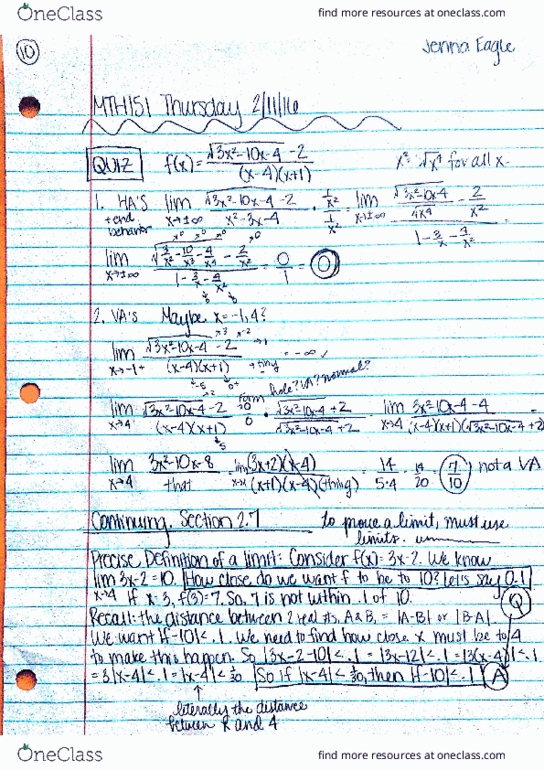 OneClass
find more resources at oneclass.com
10
Jenna Eagle
MTH151 Thursday 2/11/16
QUIZ f(x) = √(3x²-10x-4) - 2 / (x-4)(x+1) x² = √x⁴ for all x.
1. HA'S lim x→±∞ √(3x²-10x-4) - 2 / x²-3x-4 · 1/x² / 1/x² = lim x→±∞ √(3x²-10x-4)/√x⁴ - 2/x² / 1 - 3/x - 4/x²
+ end behavior
lim x→±∞ √(3/x² - 10/x³ - 4/x⁴) - 2/x² / 1 - 3/x - 4/x² = 0/1 = 0
2. VA'S Maybe x = -1, 4?
lim x→-1⁺ √(3x²-10x-4) - 2 / (x-4)(x+1) = -∞
hole? VA? normal?
lim x→4 √(3x²-10x-4) - 2 / (x-4)(x+1) form 0/0 · √(3x²-10x-4) + 2 / √(3x²-10x-4) + 2 = lim x→4 3x²-10x-4-4 / (x-4)(x+1)(√(3x²-10x-4) + 2)
lim x→4 3x²-10x-8 / that = lim x→4 (3x+2)(x-4) / (x+1)(x-4)(thing) = 14 / 5·4 = 14/20 = 7/10 not a VA
Continuing, Section 2.7 to prove a limit, must use
limits.
Precise Definition of a limit: Consider f(x) = 3x-2. We know
lim x→4 3x-2 = 10. How close do we want f to be to 10? Let's say 0.1
If x=3, f(3)=7. So, 7 is not within .1 of 10. Q
Recall: the distance between 2 real #s, A & B, = |A-B| or |B-A|.
We want |f-10| < .1. We need to find how close x must be to 4
to make this happen. So |3x-2-10| < .1 = |3x-12| < .1 = |3(x-4)| < .1
= 3|x-4| < .1 = |x-4| < 1/30 So if |x-4| < 1/30, then |f-10| < .1 A
literally the distance
between x and 4
OneClass
find more resources at oneclass.com